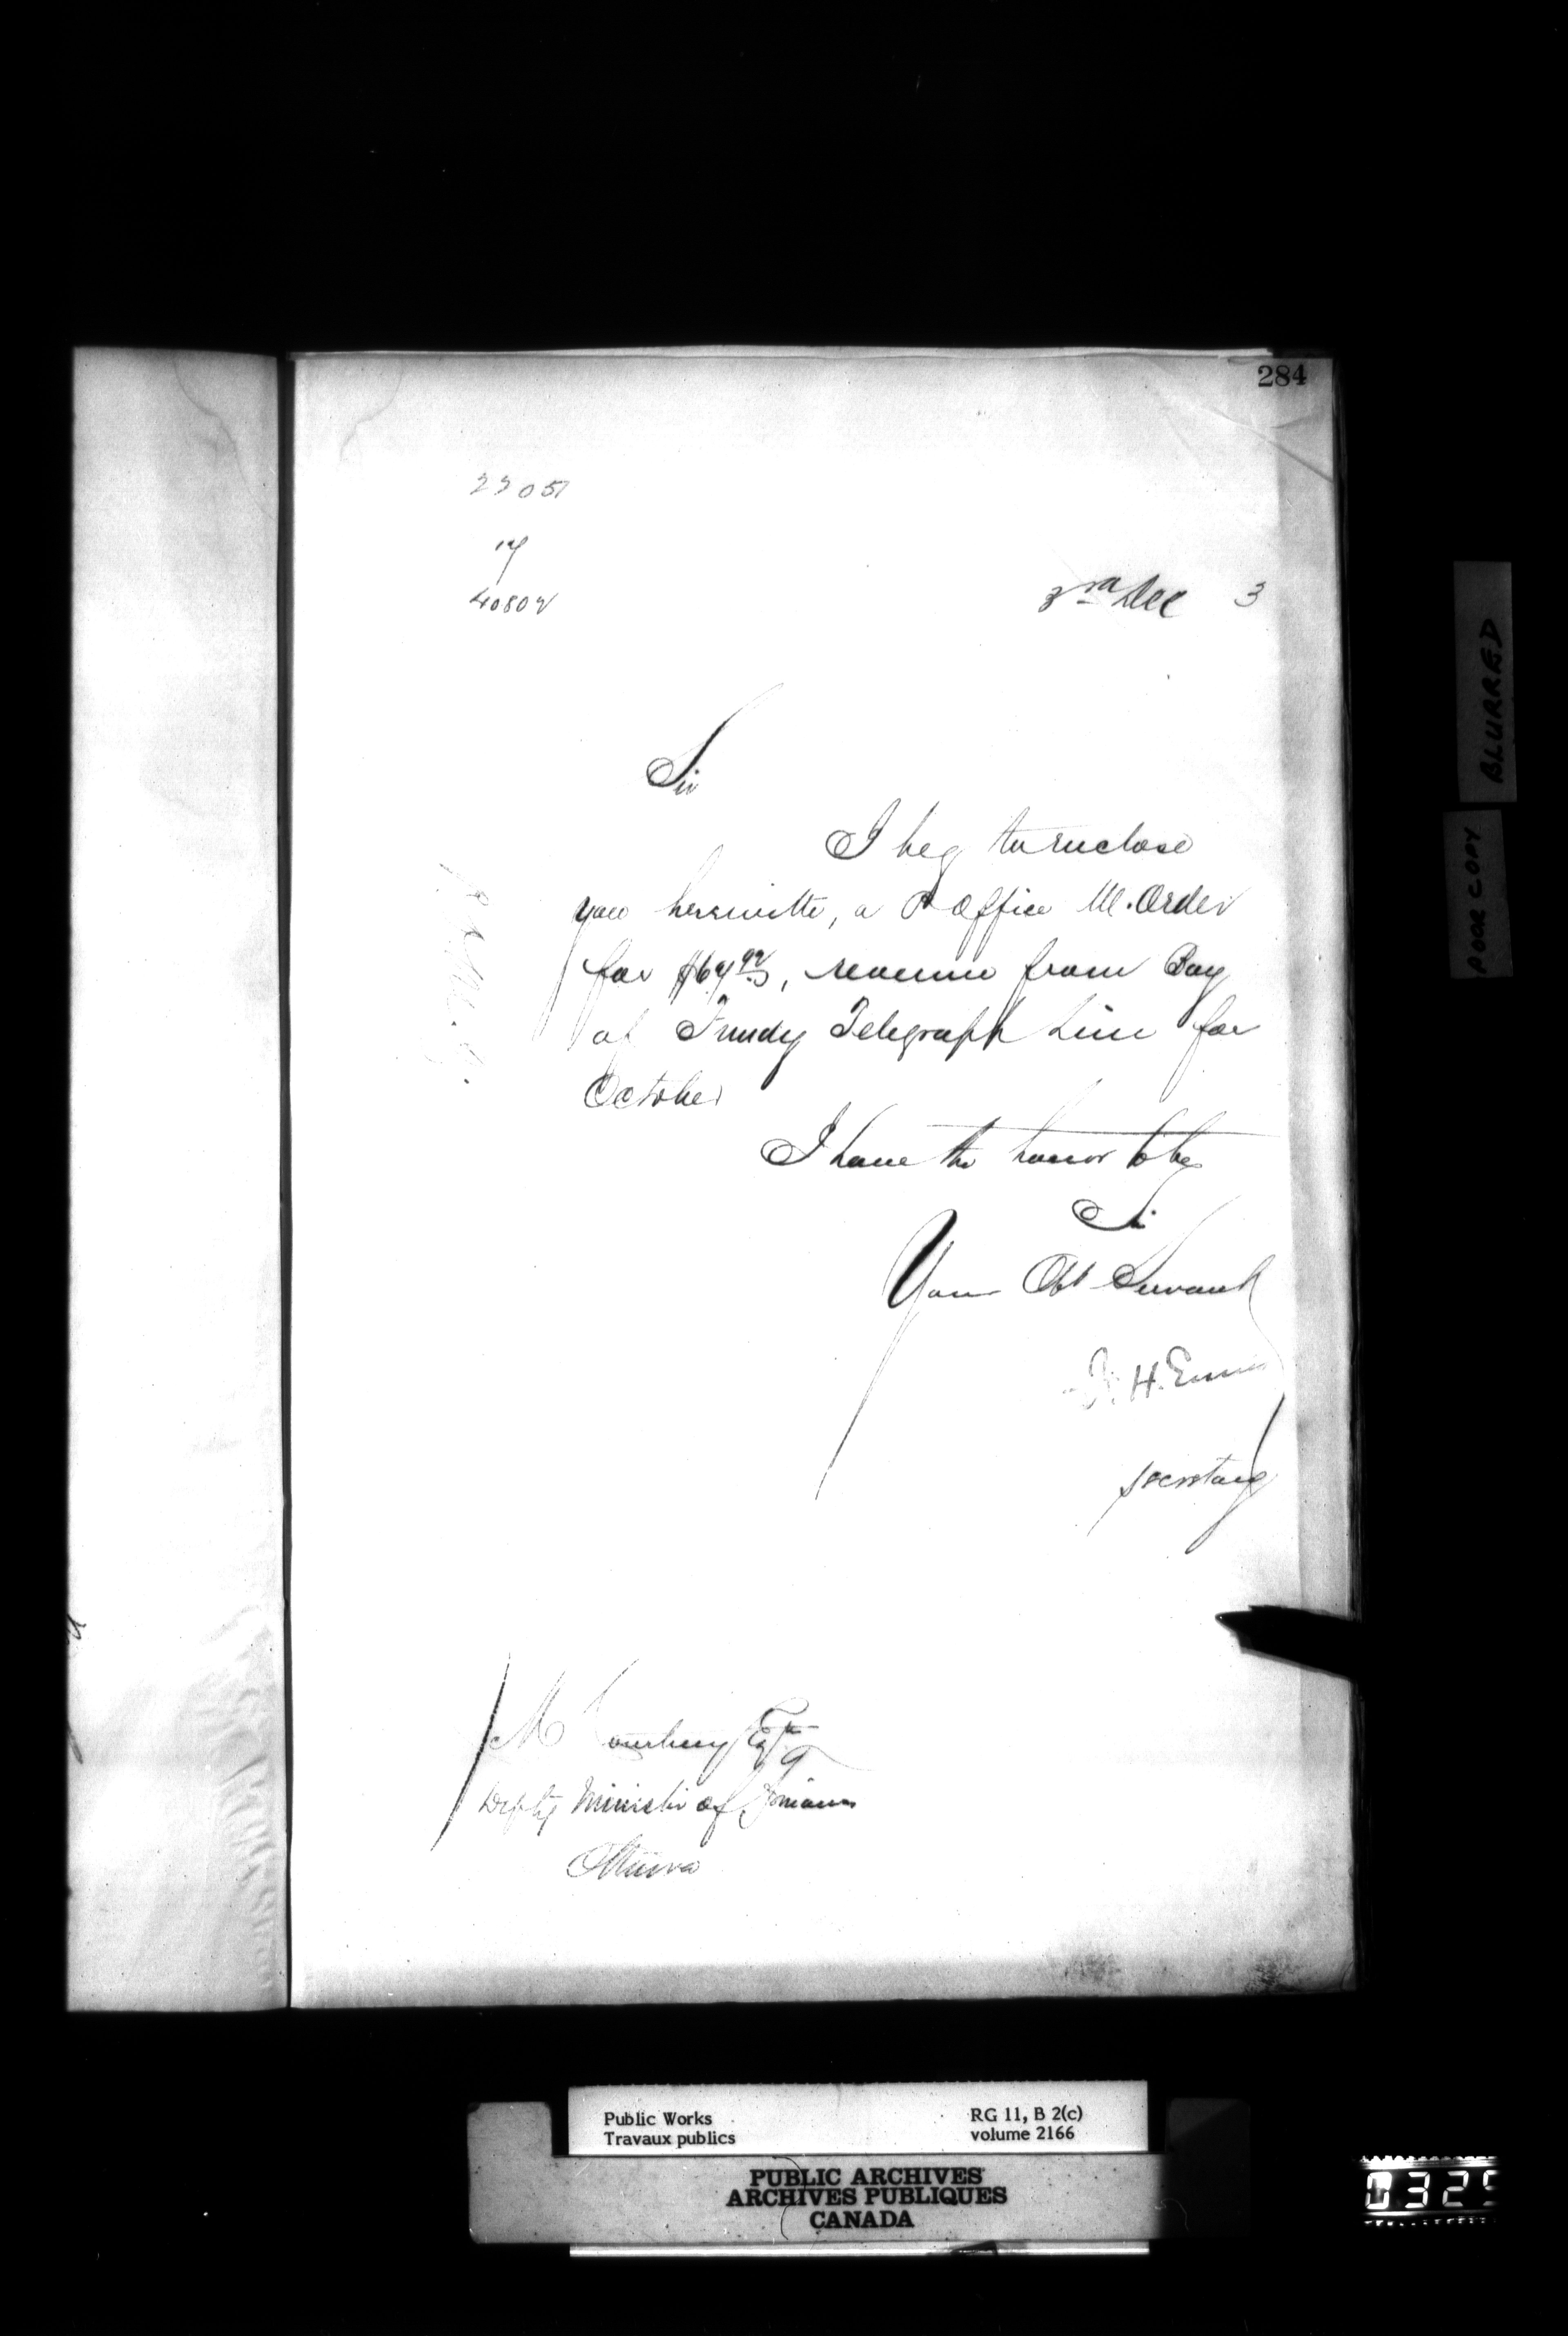 284
22051
17
40802
3rd Dec 3
Sir
I beg to enclose
you herewith, a P Office M. Order
for $64 92, revenue from Bay
of Fundy Telegraph Line for
October
I have the honor to be
Sir
Your Obt Servant
F. H. Ennis
Secretary
M Courtney Esq
Depty Minister of Finance
Ottawa
BLURRED
POOR COPY
Public Works
Travaux publics
RG 11, B 2(c)
volume 2166
PUBLIC ARCHIVES
ARCHIVES PUBLIQUES
CANADA
0325